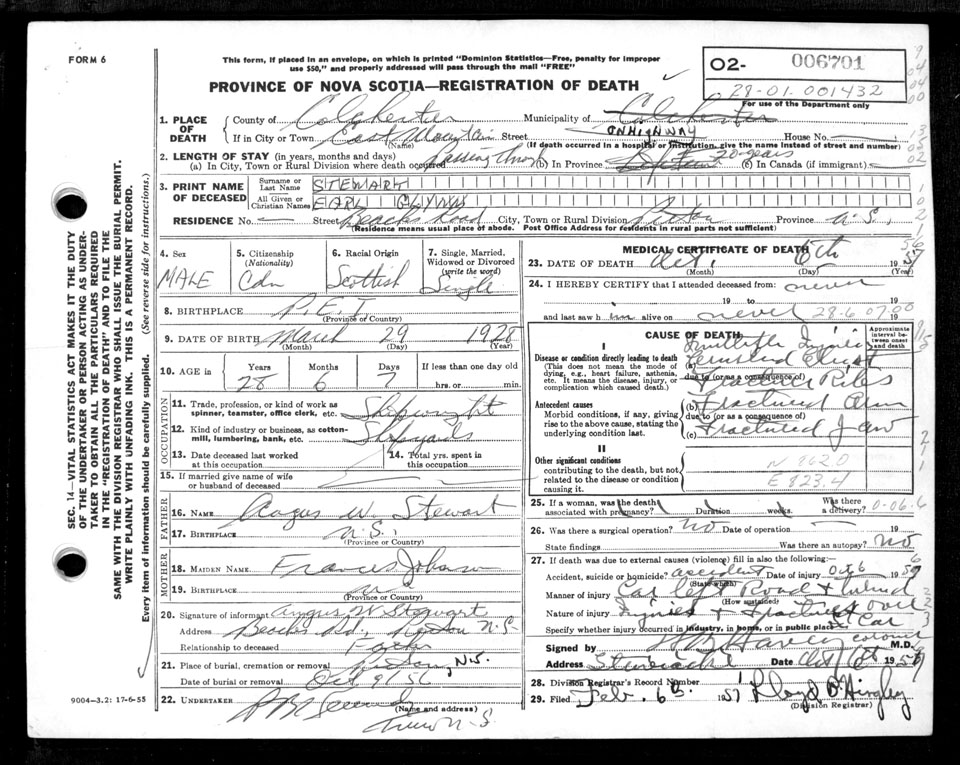 FORM 6
This form, if placed in an envelope, on which is printed "Dominion Statistics—Free, penalty for improper
use $50," and properly addressed will pass through the mail "FREE"
02- 006701
28-01.001432
For use of the Department only
PROVINCE OF NOVA SCOTIA—REGISTRATION OF DEATH
1. PLACE OF DEATH
County of Colchester Municipality of Colchester
If in City or Town East Mountain Street ON HIGHWAY House No.
(Name) (If death occurred in a hospital or institution, give the name instead of street and number)
2. LENGTH OF STAY (in years, months and days)
(a) In City, Town or Rural Division where death occurred Passing thru (b) In Province 20 years (c) In Canada (if immigrant)
3. PRINT NAME OF DECEASED
Surname or Last Name STEWART
All Given or Christian Names EARL GLYNN
RESIDENCE No. — Street Beaches Road City, Town or Rural Division Pictou Province N.S.
(Residence means usual place of abode. Post Office Address for residents in rural parts not sufficient)
4. Sex MALE
5. Citizenship (Nationality) Cdn
6. Racial Origin Scottish
7. Single, Married, Widowed or Divorced (write the word) Single
8. BIRTHPLACE P.E.I.
(Province or Country)
9. DATE OF BIRTH March 29 1928
(Month) (Day) (Year)
10. AGE IN Years Months Days If less than one day old
28 6 7 hrs. or min.
OCCUPATION
11. Trade, profession, or kind of work as spinner, teamster, office clerk, etc. Shipwright
12. Kind of industry or business, as cotton-mill, lumbering, bank, etc. Shipyards
13. Date deceased last worked at this occupation
14. Total yrs. spent in this occupation
15. If married give name of wife or husband of deceased
FATHER
16. NAME Angus W Stewart
17. BIRTHPLACE N.S.
(Province or Country)
MOTHER
18. MAIDEN NAME Frances Johnson
19. BIRTHPLACE
(Province or Country)
20. Signature of informant Angus W Stewart
Address Beaches Rd, Pictou N.S
Relationship to deceased Father
21. Place of burial, cremation or removal N.S.
Date of burial or removal Oct 9/56
22. UNDERTAKER
(Name and address)
Truro N.S
9004—3.2: 17-6-55
SEC. 14—VITAL STATISTICS ACT MAKES IT THE DUTY
OF THE UNDERTAKER OR PERSON ACTING AS UNDER-
TAKER TO OBTAIN ALL THE PARTICULARS REQUIRED
IN THE "REGISTRATION OF DEATH" AND TO FILE THE
SAME WITH THE DIVISION REGISTRAR WHO SHALL ISSUE THE BURIAL PERMIT.
WRITE PLAINLY WITH UNFADING INK. THIS IS A PERMANENT RECORD.
Every item of information should be carefully supplied. (See reverse side for instructions.)
MEDICAL CERTIFICATE OF DEATH
23. DATE OF DEATH Oct. 6th 19
(Month) (Day) (Year)
24. I HEREBY CERTIFY that I attended deceased from never
19 to 19
and last saw him alive on never 28-6 07.00 19
CAUSE OF DEATH
Approximate interval between onset and death
I
Disease or condition directly leading to death
(This does not mean the mode of dying, e.g., heart failure, asthenia, etc. It means the disease, injury, or complication which caused death.)
Multiple Injuries
(a) Crushed Chest
due to (or as a consequence of)
Fractured Ribs
Antecedent causes
Morbid conditions, if any, giving rise to the above cause, stating the underlying condition last.
(b) Fractured Arm
due to (or as a consequence of)
(c) Fractured Jaw
II
Other significant conditions
contributing to the death, but not related to the disease or condition causing it.
N 8620
E 823.4
25. If a woman, was the death associated with pregnancy? Duration weeks. Was there a delivery?
26. Was there a surgical operation? No Date of operation — 19
State findings Was there an autopsy? No
27. If death was due to external causes (violence) fill in also the following:—
Accident, suicide or homicide? accident Date of injury Oct 6 19
(State which)
Manner of injury Car left Road & turned over
(How sustained)
Nature of injury Injuries & Fractures
Specify whether injury occurred in industry, in home, or in public place Car
Signed by coroner M.D.
Address Stewiacke Date Oct 19
28. Division Registrar's Record Number
29. Filed Feb. 6th 1957 Lloyd B Hingley
(Division Registrar)